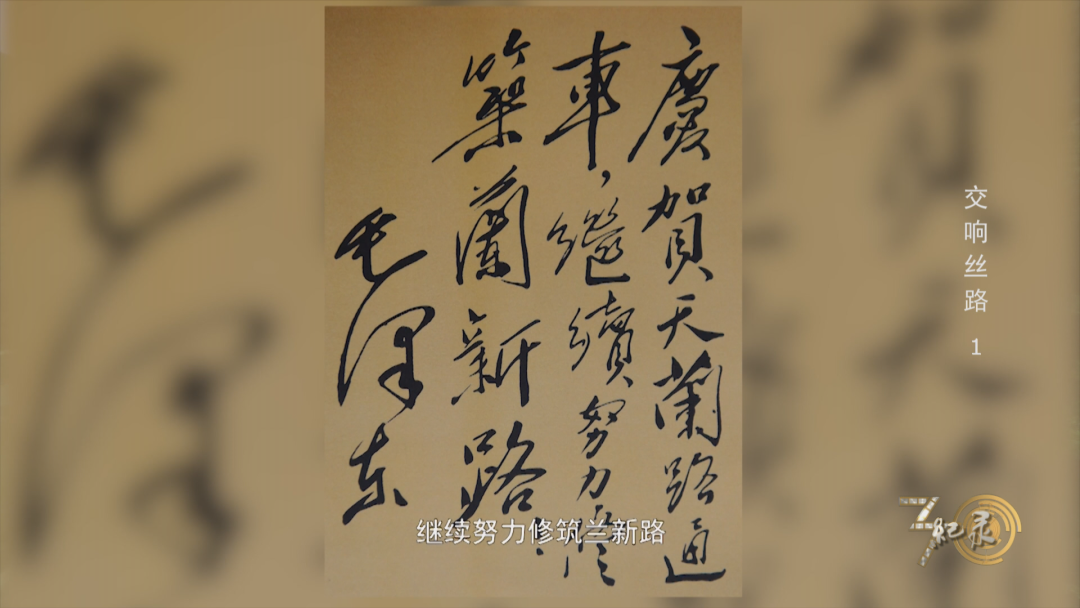 慶賀天蘭路通
車，繼續努力修
築蘭新路！
毛泽东
继续努力修筑兰新路
交响丝路 1
纪录